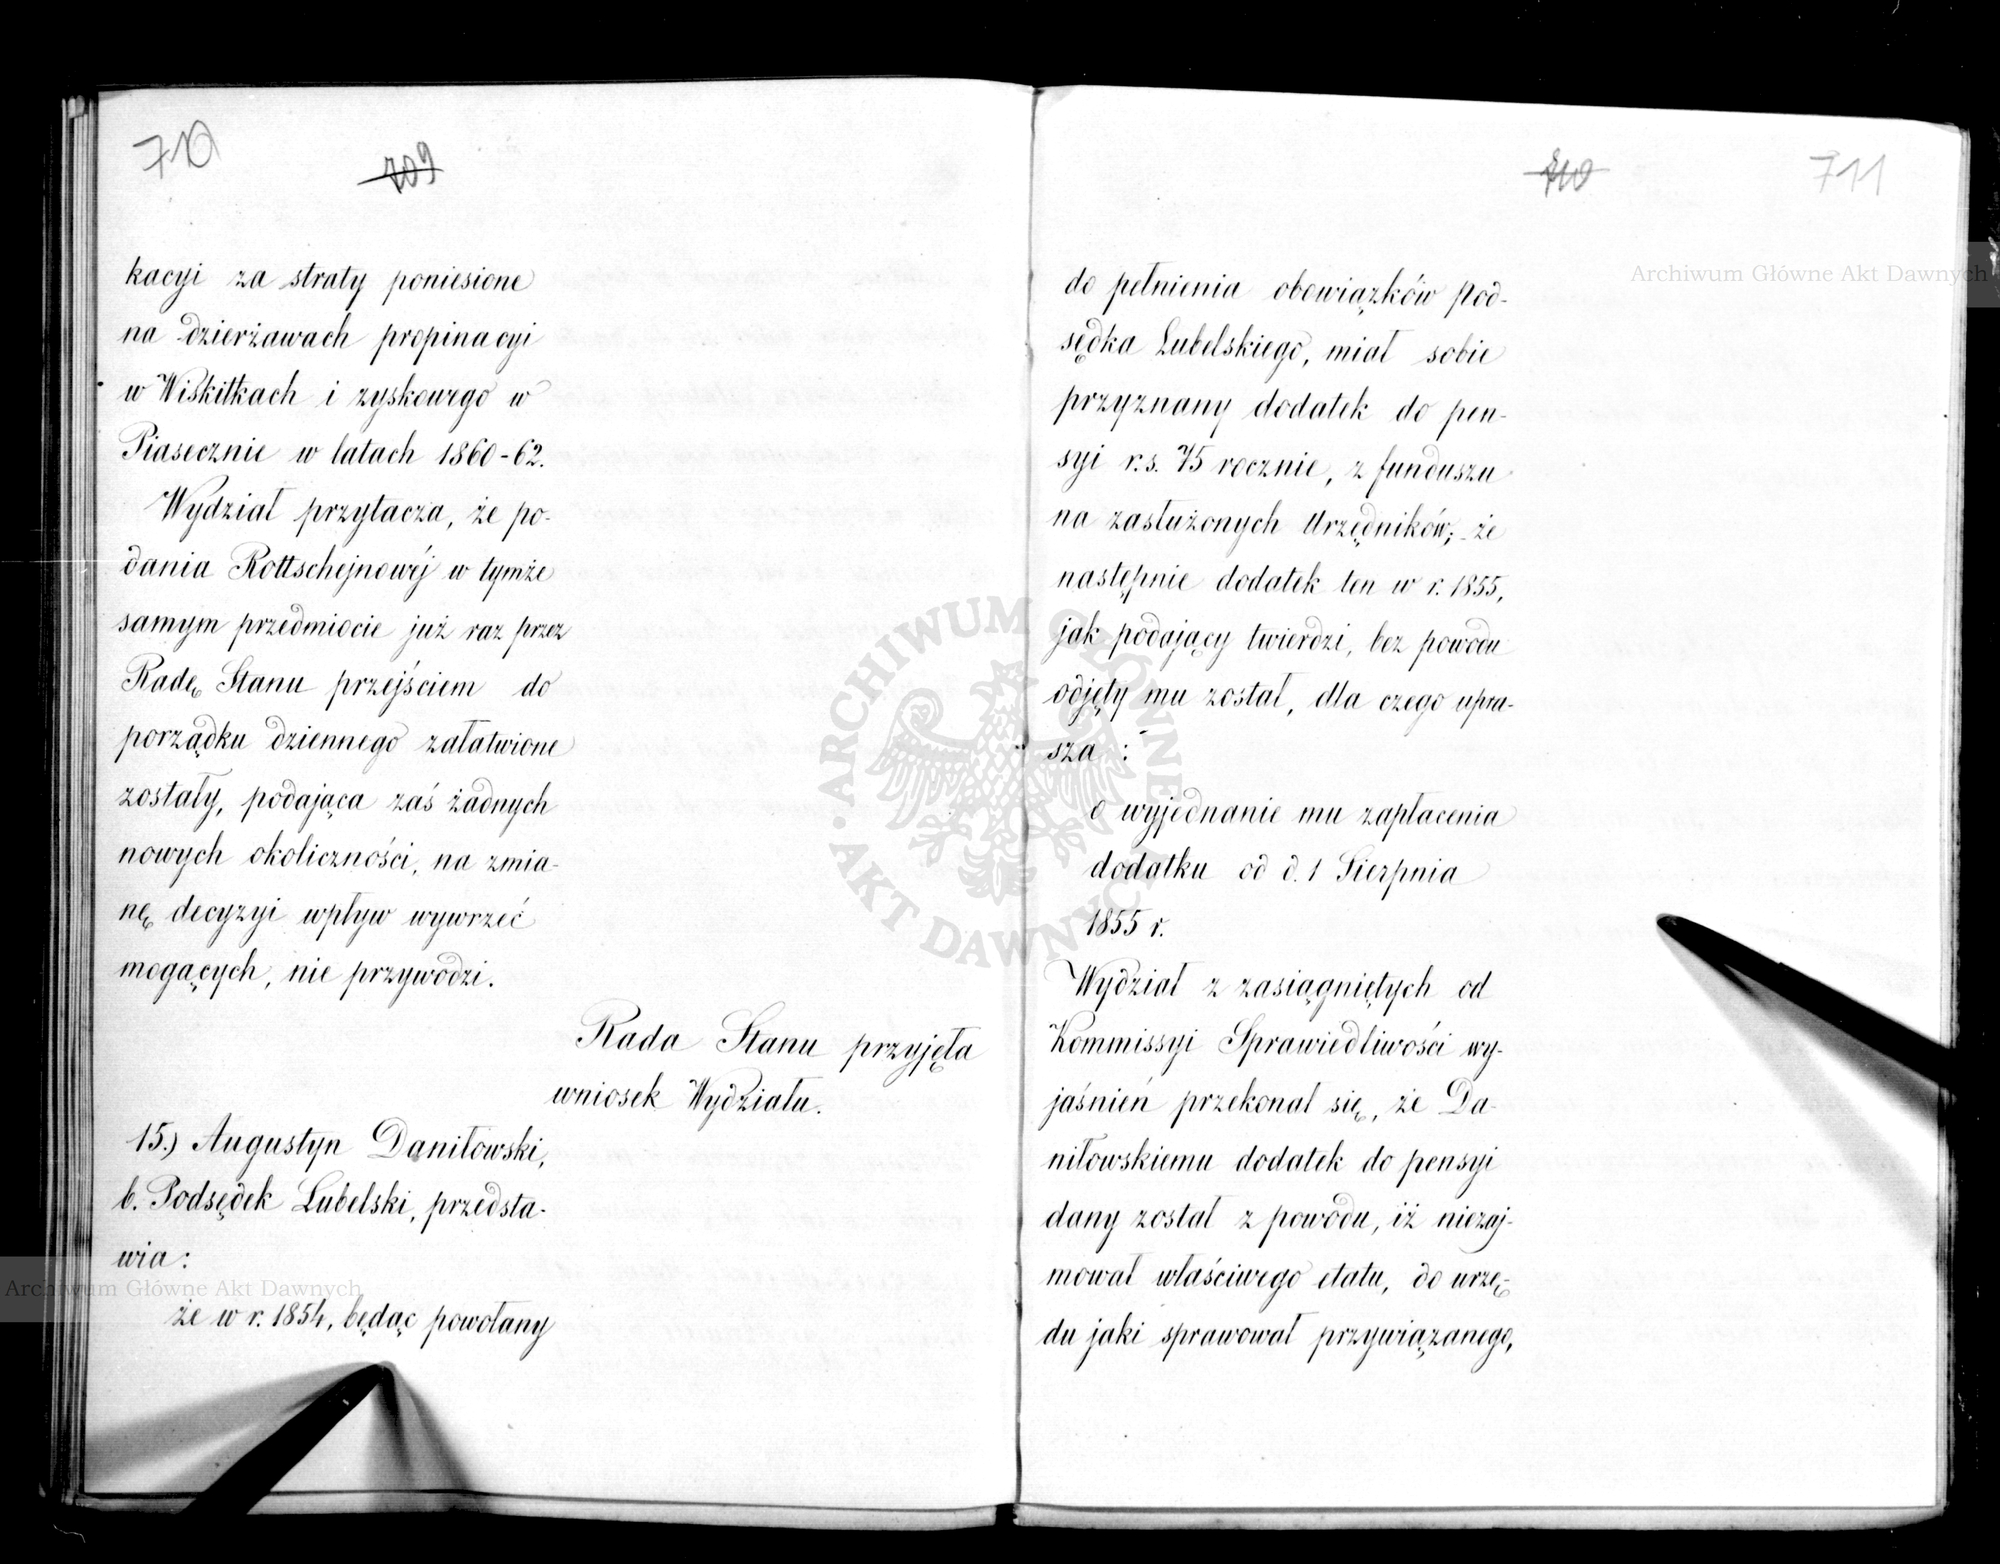 710
709
kacyi za straty poniesione
na dzierżawach propinacyi
w Wiskitkach i zyskowego w
Piasecznie w latach 1860-62.
Wydział przytacza, że po-
dania Rottschejnowéj w tymże
samym przedmiocie już raz przez
Radę Stanu przejściem do
porządku dziennego załatwione
zostały, podająca zaś żadnych
nowych okoliczności, na zmia-
nę decyzyi wpływ wywrzeć
mogących, nie przywodzi.
Rada Stanu przyjęła
wniosek Wydziału.
15.) Augustyn Daniłowski,
b. Podsędek Lubelski, przedsta-
wia:
że w r. 1854, będąc powołany
710
711
do pełnienia obowiązków Pod-
sędka Lubelskiego, miał sobie
przyznany dodatek do pen-
syi r.s. 75 rocznie, z funduszu
na zasłużonych Urzędników; że
następnie dodatek ten w r. 1855,
jak podający twierdzi, bez powodu
odjęty mu został, dla czego upra-
sza :
o wyjednanie mu zapłacenia
dodatku od d. 1 Sierpnia
1855 r.
Wydział z zasiągniętych od
Kommissyi Sprawiedliwości wy-
jaśnień przekonał się, że Da-
niłowskiemu dodatek do pensyi
dany został z powodu, iż niezaj-
mował właściwego etatu, do urzę-
du jaki sprawował przywiązanego,
Archiwum Główne Akt Dawnych
Archiwum Główne Akt Dawnych
ARCHIWUM GŁÓWNE AKT DAWNYCH